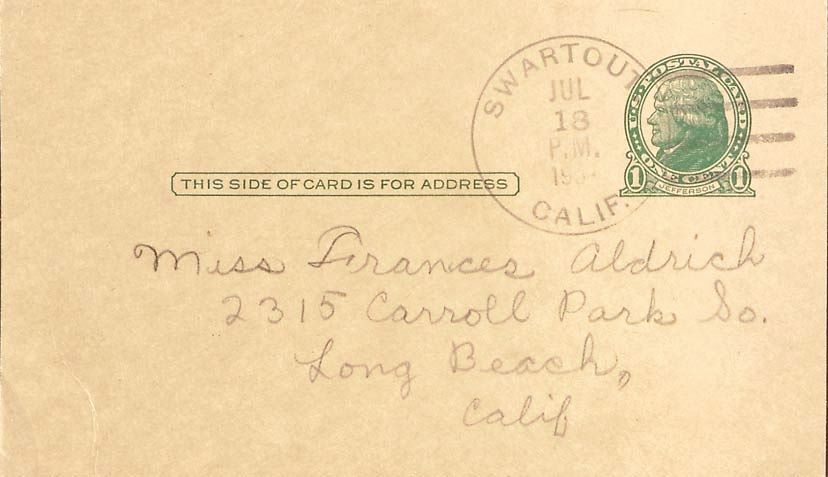 SWARTOUT
JUL
18
P.M.
CALIF.
U.S. POSTAL CARD
1 JEFFERSON 1
THIS SIDE OF CARD IS FOR ADDRESS
Miss Frances Aldrich
2315 Carroll Park So.
Long Beach,
Calif